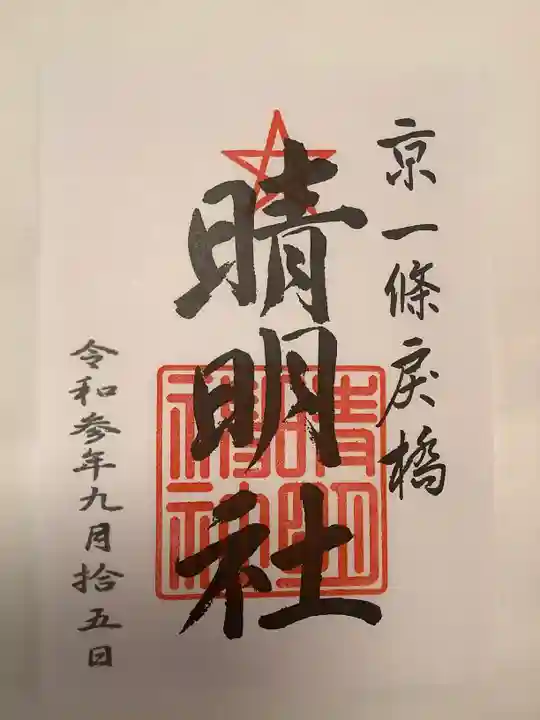 京一條戻橋
晴明社
令和参年九月拾五日